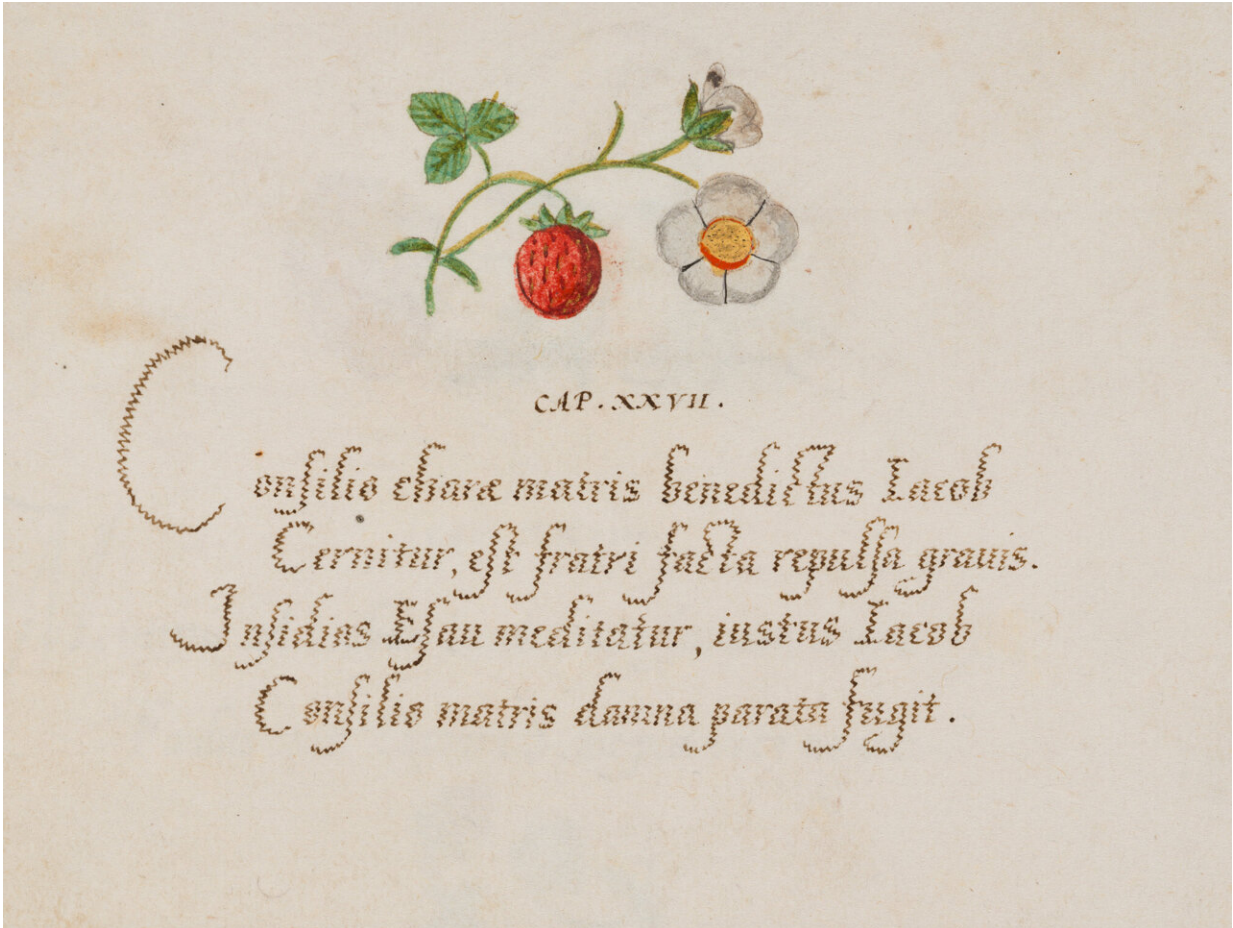 CAP. XXVII.
Consilio charæ matris benedictus Iacob
Cernitur, est fratri facta repulsa grauis.
Insidias Esau meditatur, iustus Iacob
Consilio matris damna parata fugit.